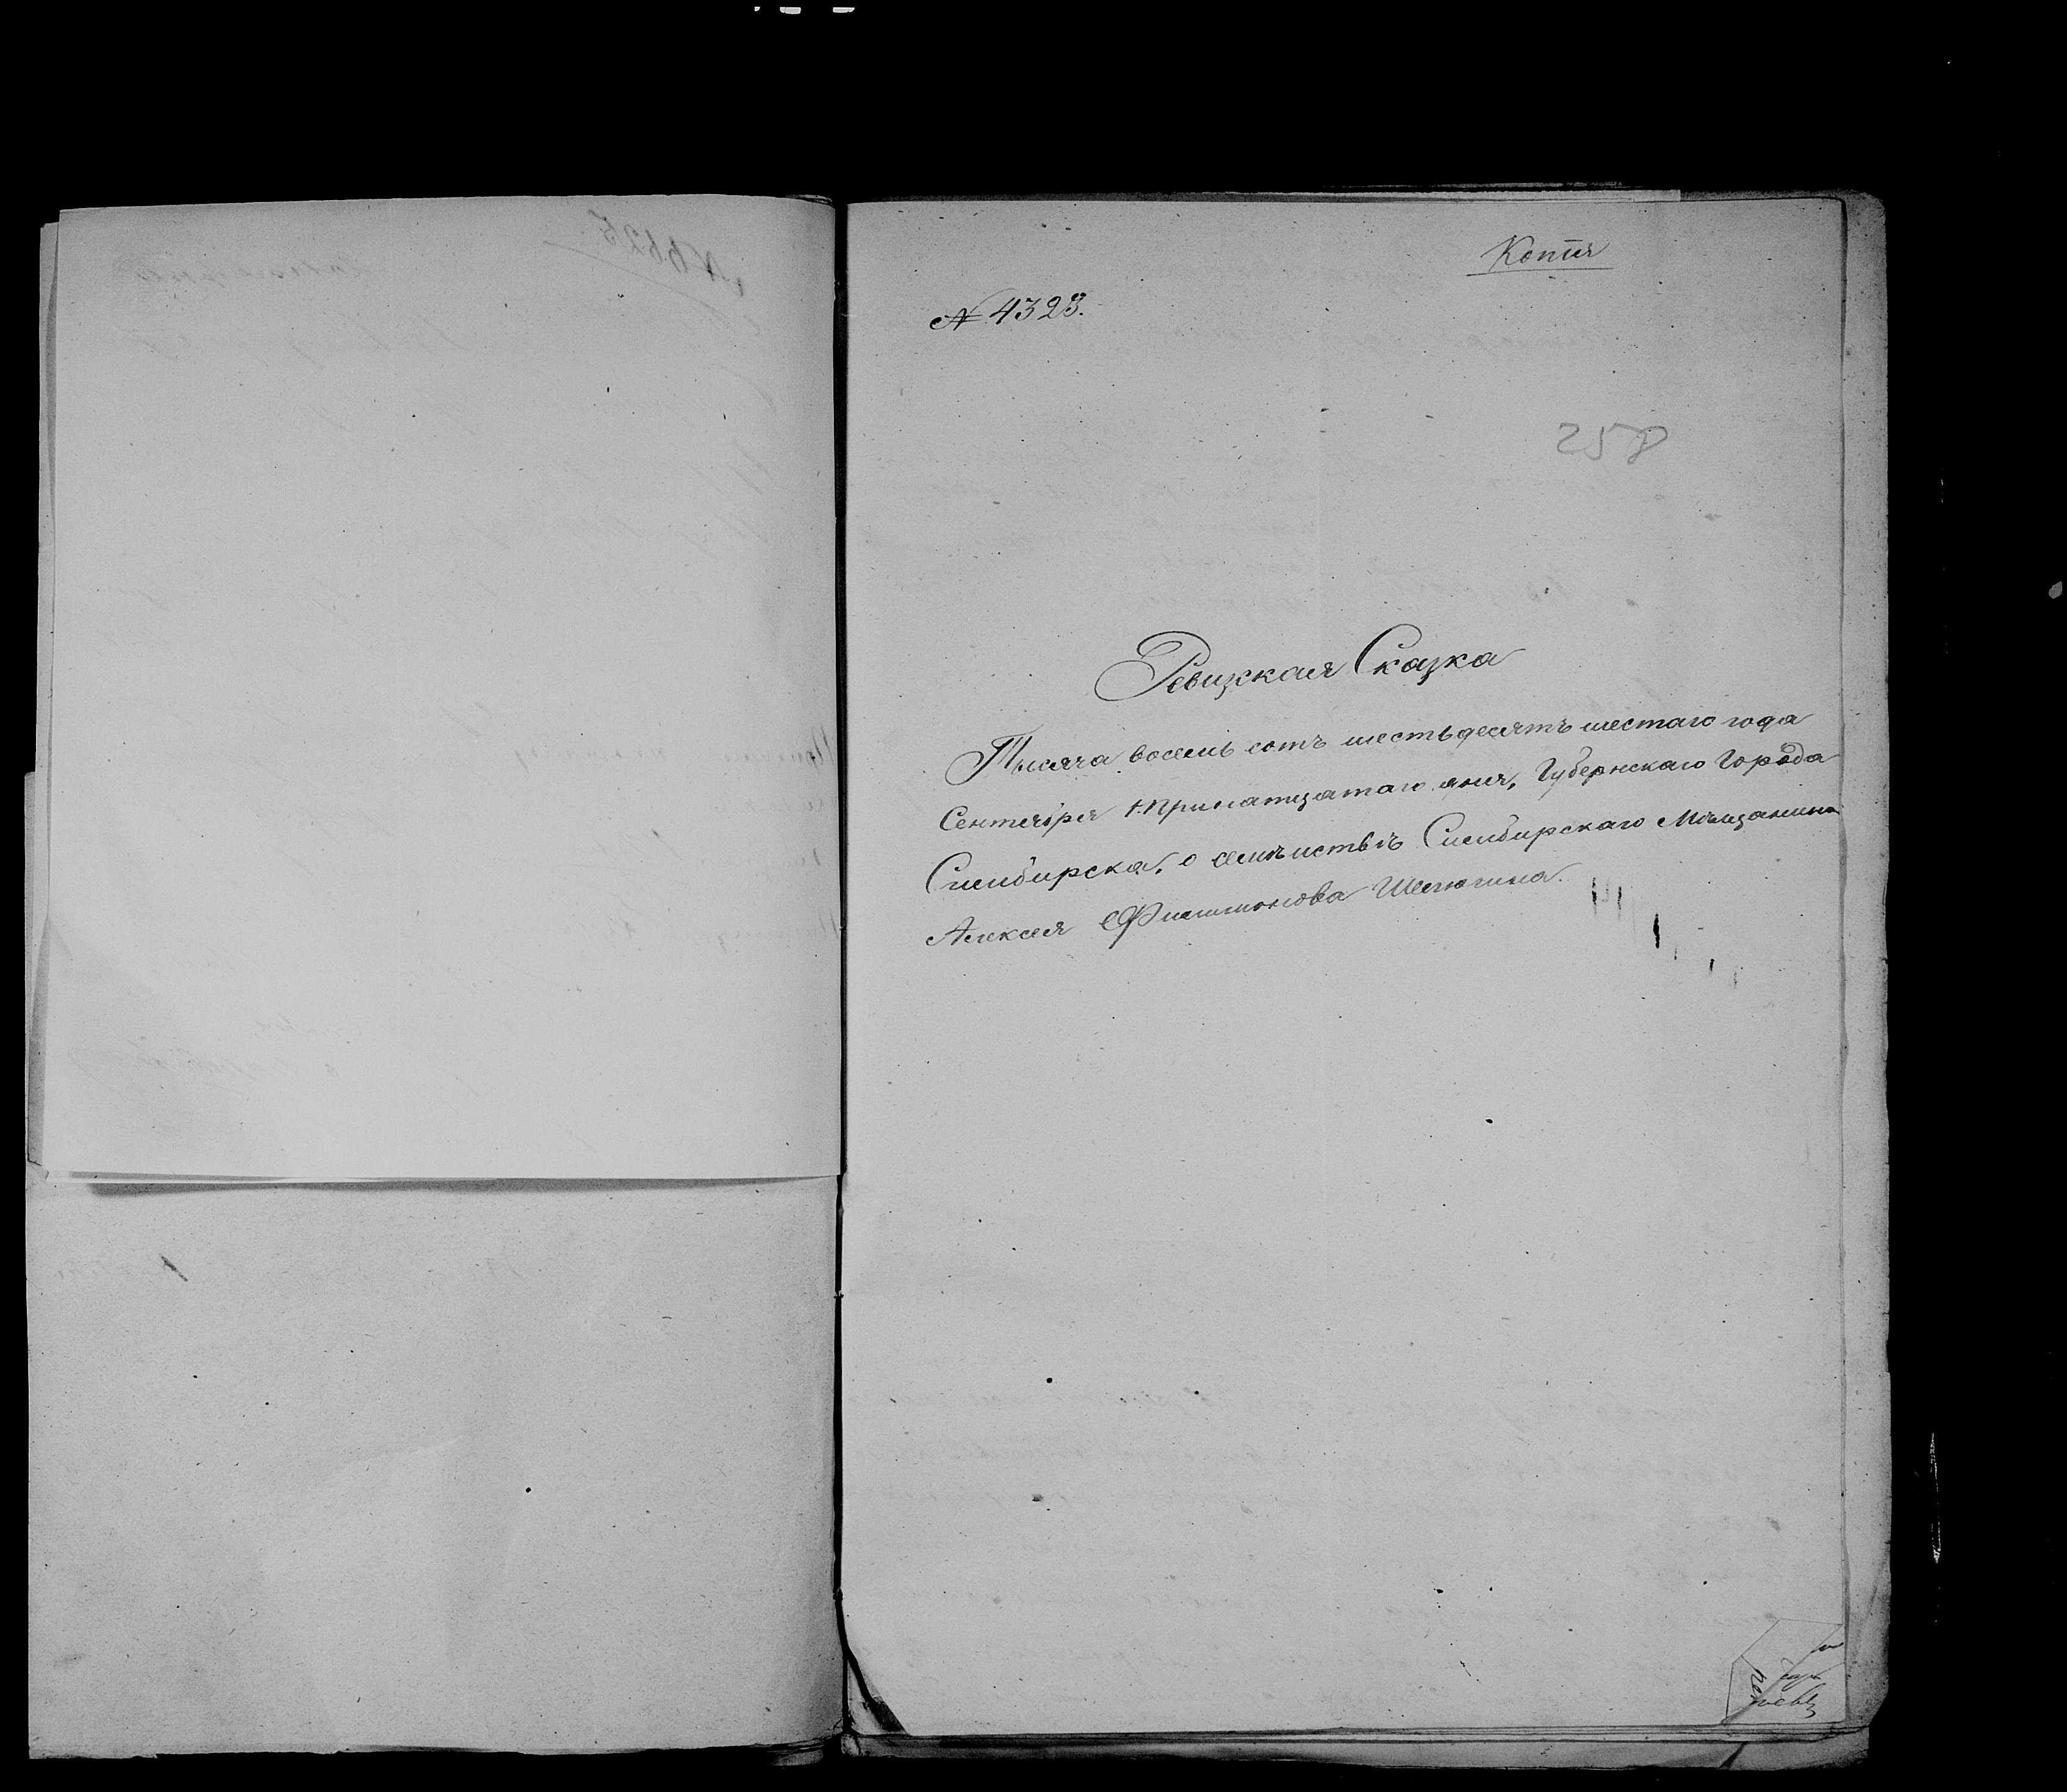 Копія
№ 4323.
258
Ревизская Сказка
Тысяча восемь сотъ шестьдесятъ шестаго года
Сентября тринатцатаго дня, Губернскаго Города
Симбирска, о семѣйствѣ Симбирскаго Мѣщанина
Алексея Филимонова